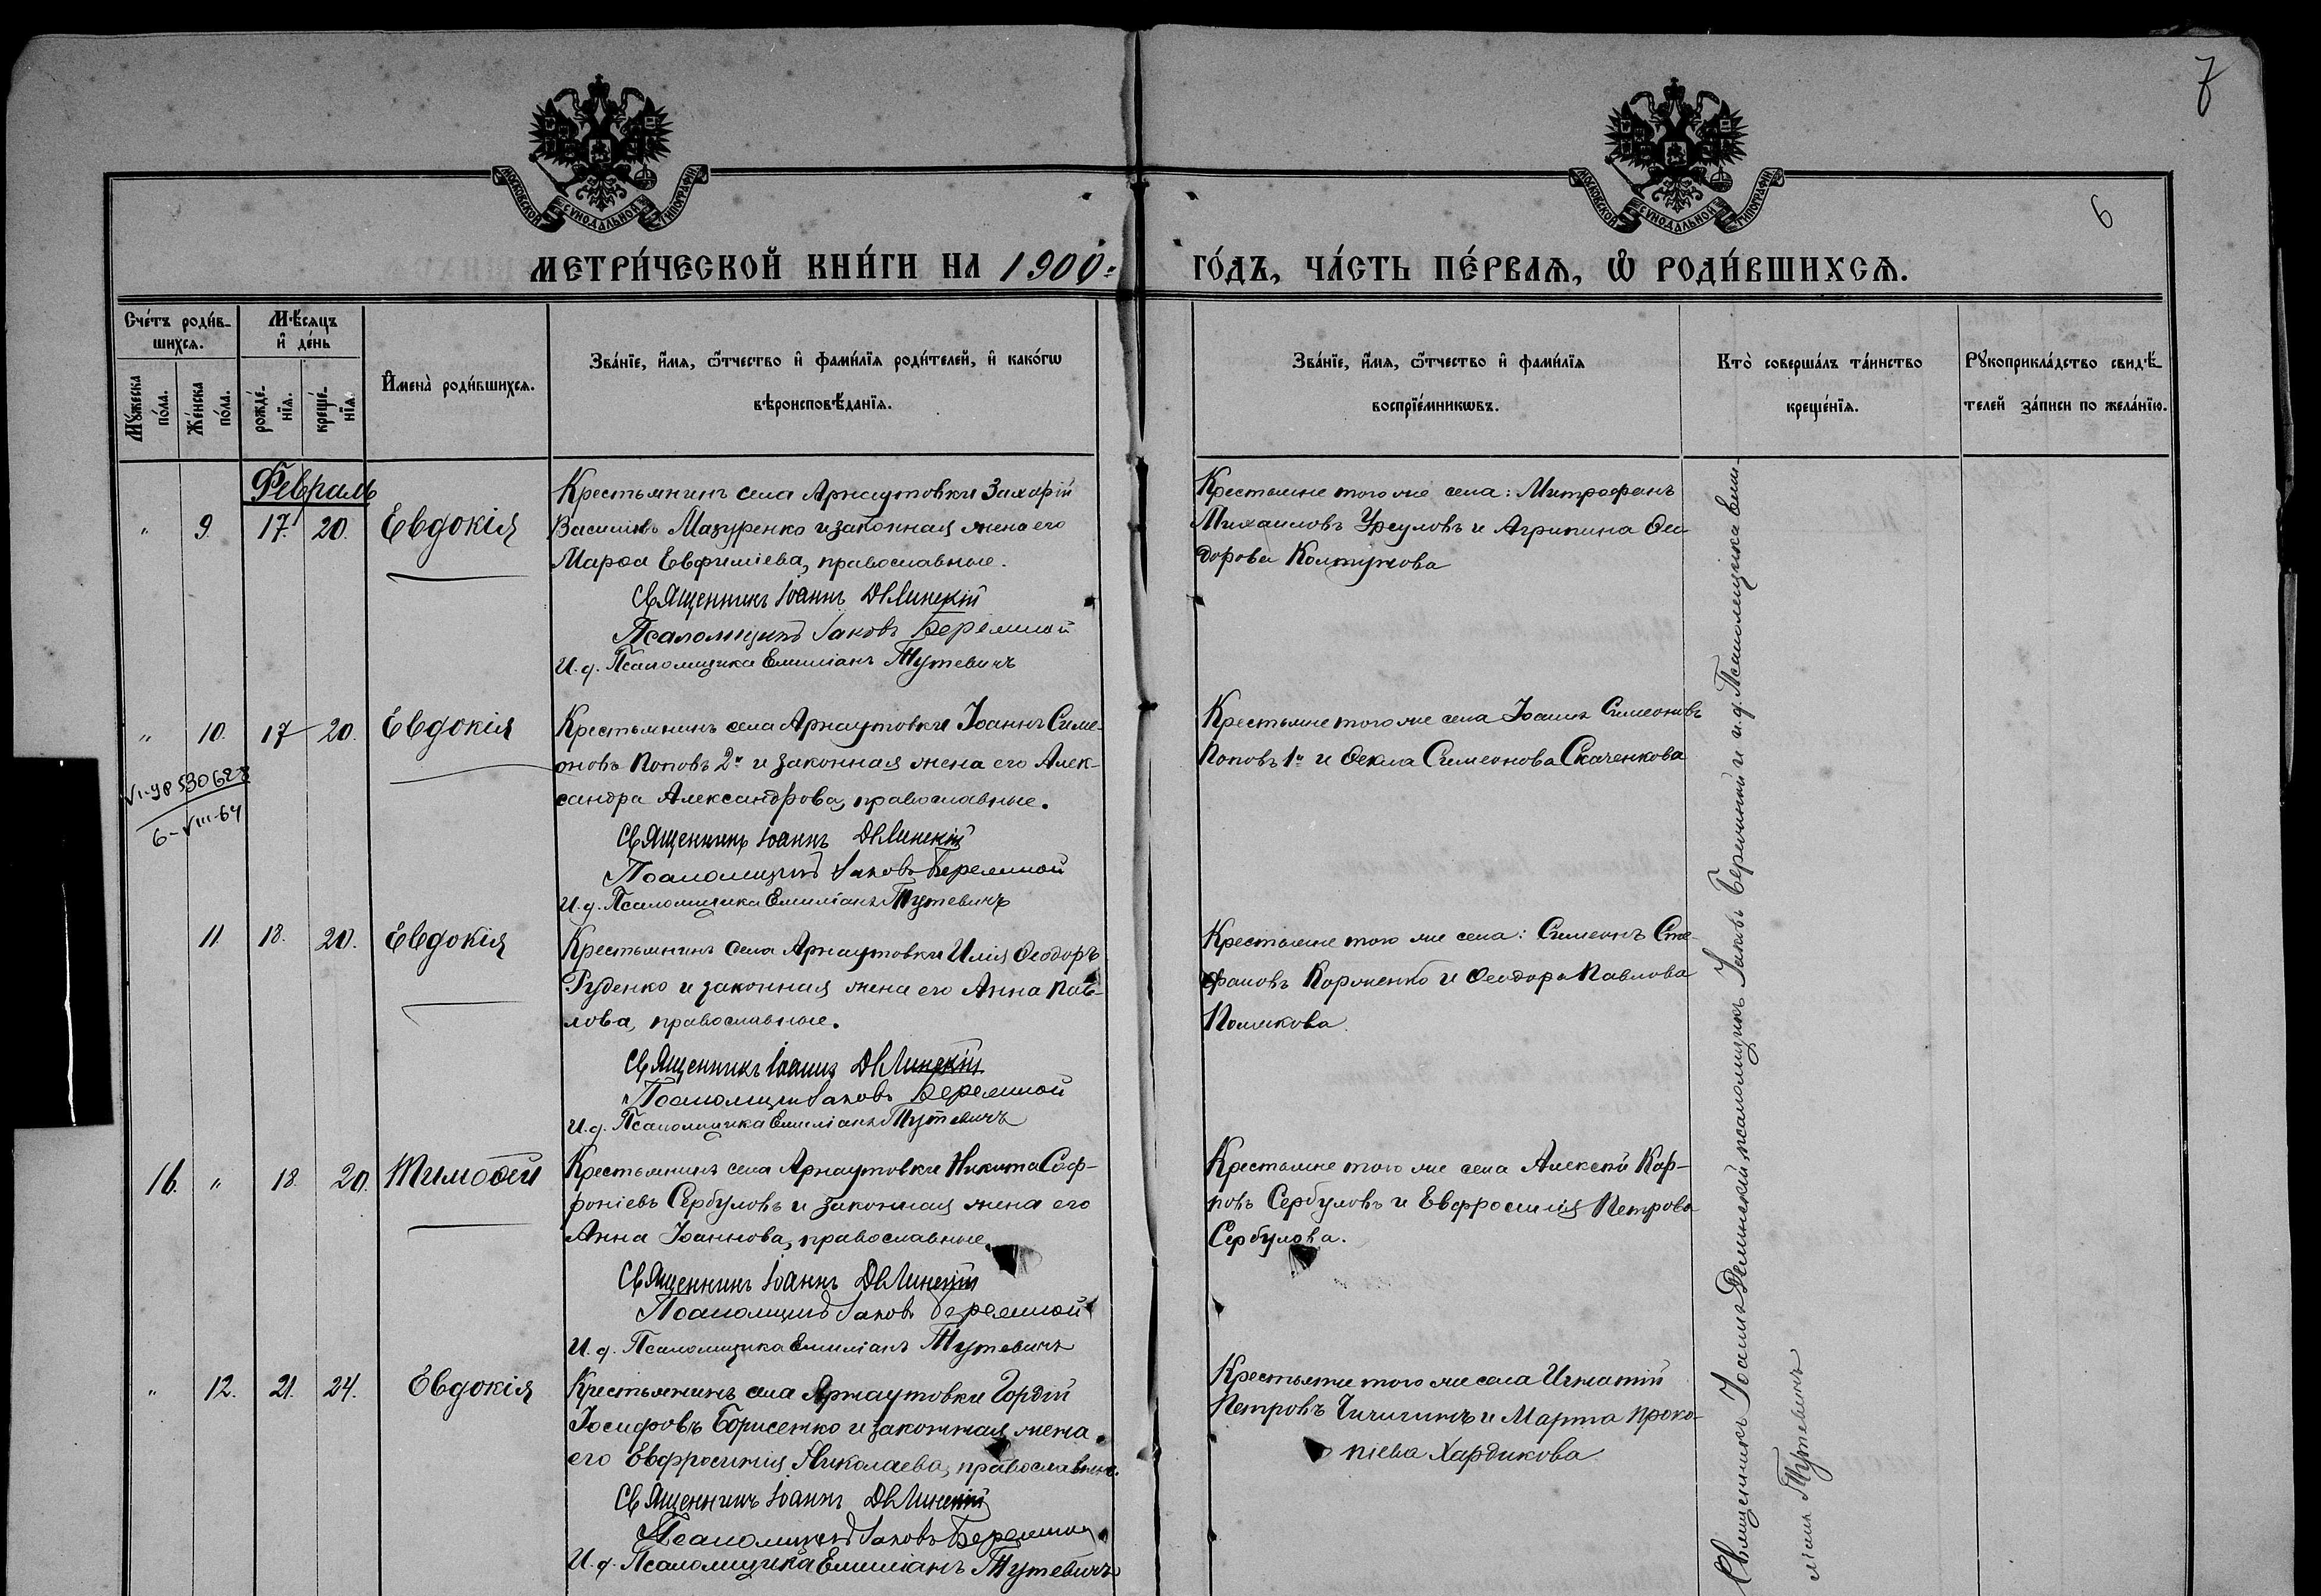 7
6
МОСКОВСКОЙ СѴНОДАЛЬНОЙ ТИПОГРАФІИ
МОСКОВСКОЙ СѴНОДАЛЬНОЙ ТИПОГРАФІИ
МЕТРИ́ЧЕСКОЙ КНИ́ГИ НА 1900 ГО́ДЪ, ЧА́СТЬ ПЕ́РВАѦ, Ѡ҆ РОДИ́ВШИХСѦ.
Сче́тъ роди́в-
шихсѧ.
Мꙋ́жеска по́ла.
Же́нска по́ла.
Мѣ́сѧцъ
и҆ де́нь
рожде́-
нїѧ.
креще́-
нїѧ.
И҆мена̀ роди́вшихсѧ.
Зва́нїе, и҆́мѧ, ѻ҆́тчество и҆ фами́лїѧ роди́телей, и҆ како́гѡ
вѣроисповѣ́данїѧ.
Зва́нїе, и҆́мѧ, ѻ҆́тчество и҆ фами́лїѧ
воспрїе́мникѡвъ.
Кто̀ соверша́лъ та́инство
креще́нїѧ.
Рꙋкоприкла́дство свидѣ́-
телей за́писи по жела́нїю.
Февраль
" 9. 17. 20. Евдокія
Крестьянинъ села Арнаутовки Захарій
Васильевъ Мазуренко и законная жена его
Марѳа Евфиміева, православные.
Священникъ Іоаннъ Дѣлинскій
Псаломщикъ Іаковъ
И. д. Псаломщика Емиліанъ Тутевичъ
Крестьяне того же села: Митрофанъ
Михаиловъ Урсуловъ и Агрипина Ѳео-
дорова Колтукова
" 10. 17 20. Евдокія
Крестьянинъ села Арнаутовки Іоаннъ Симе-
оновъ Поповъ 2й и законная жена его Алек-
сандра Александрова, православные.
Священникъ Іоаннъ Дѣлинскій
Псаломщикъ Іаковъ
И. д. Псаломщика Емиліанъ Тутевичъ
Крестьяне того же села Іоаннъ Симеоновъ
Поповъ 1й и Ѳекла Симеонова Скаченкова
530628
6-VIII-64
11. 18. 20. Евдокія
Крестьянинъ села Арнаутовки Илія Ѳеодоръ
Руденко и законная жена его Анна Пав-
лова, православные.
Священникъ Іоаннъ Дѣлинскій
Псаломщикъ Іаковъ
И. д. Псаломщика Емиліанъ Тутевичъ
Крестьяне того же села: Симеонъ Сте-
фановъ и Ѳеодора Павлова
Полякова
16. " 18. 20. Тимоѳей
Крестьянинъ села Арнаутовки Никита Соф-
роніевъ Сербуловъ и законная жена его
Анна Іоаннова, православные.
Священникъ Іоаннъ Дѣлинскій
Псаломщикъ Іаковъ
И. д. Псаломщика Емиліанъ Тутевичъ
Крестьяне того же села Алексѣй Кар-
повъ Сербуловъ и Евфросинія Петрова
Сербулова.
" 12. 21. 24. Евдокія
Крестьянинъ села Арнаутовки Гордій
Іосифовъ Борисенко и законная жена
его Евфросинія Николаева, православные.
Священникъ Іоаннъ Дѣлинскій
Псаломщикъ Іаковъ
И. д. Псаломщика Емиліанъ Тутевичъ
Крестьяне того же села Игнатій
Петровъ Чичигинъ и Марта Проко-
піева Хардикова
Священникъ Іоаннъ Дѣлинскій псаломщикъ Іаковъ и и. д. Псаломщика Еми-
ліанъ Тутевичъ